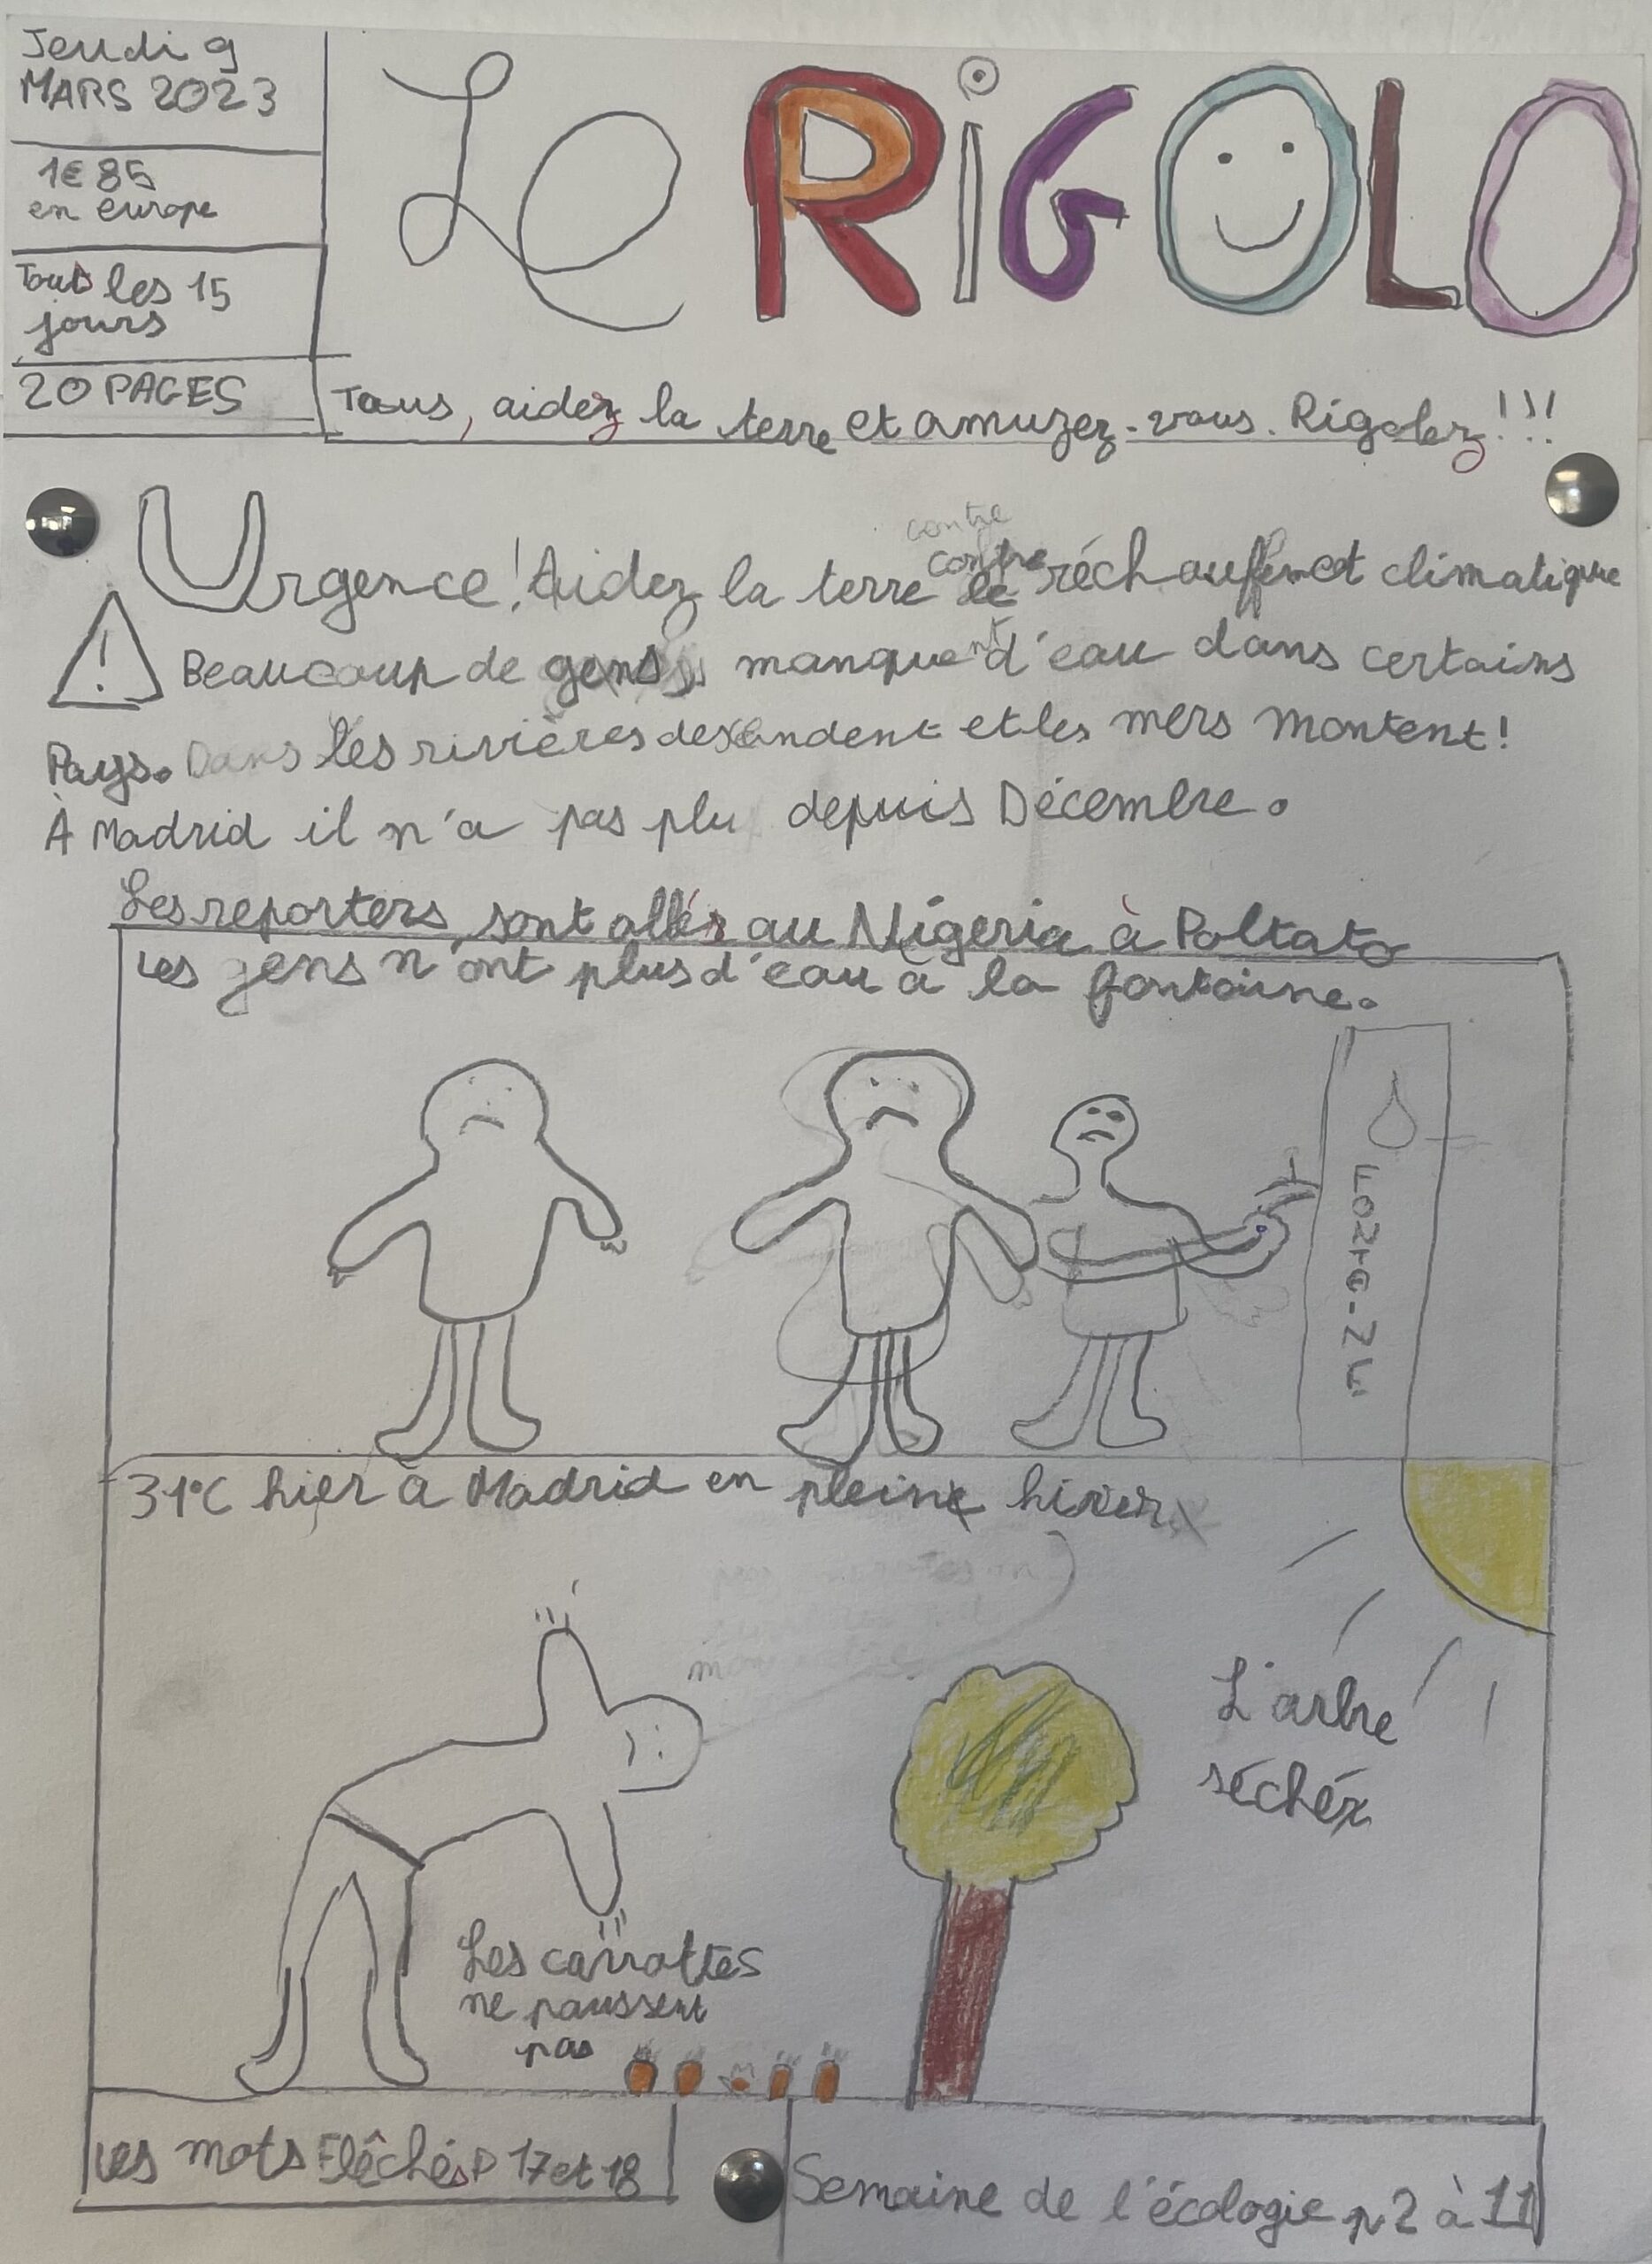 Jeudi 9
MARS 2023
1€ 85
en europe
Tous les 15
jours
20 PAGES
Le RiGOLO
Tous, aidez la terre et amuzez-vous. Rigolez!!!
Urgence! Aidez la terre contre le réchauffemet climatique
Beaucoup de gens manquent d'eau dans certains
Pays. Les rivières descendent et les mers montent!
À Madrid il n'a pas plu depuis Décembre.
Les reporters, sont allés au Nigeria à Poltato
Les gens n'ont plus d'eau à la fontaine.
FONTAI-NE
31°C hier à Madrid en plein hiver
L'arbre
séché
Les carrottes
ne paussent
pas
Les mots Flêchés P 17 et 18
Semaine de l'écologie p 2 à 11